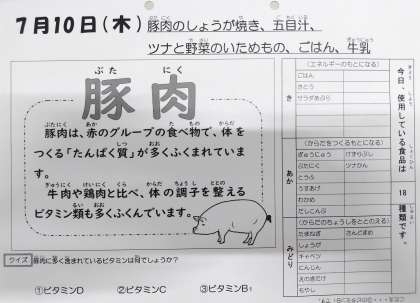 7月10日(木) 豚肉のしょうが焼き、五目汁、
ツナと野菜のいためもの、ごはん、牛乳
ぶた にく
豚肉
豚肉は、赤のグループの食べ物で、体を
つくる「たんぱく質」が多くふくまれていま
す。
牛肉や鶏肉と比べ、体の調子を整える
ビタミン類も多くふくんでいます。
クイズ 豚肉に多く含まれているビタミンは何でしょうか?
①ビタミンD ②ビタミンC ③ビタミンB1
今日、使用している食品は
18
種類です。
き
(エネルギーのもとになる)
ごはん
さとう
サラダあぶら
あか
(からだをつくるもとになる)
ぎゅうにゅう けずりぶし
ぶたにく ツナかん
とうふ
うすあげ
わかめ
だしこんぶ
みどり
(からだのちょうしをととのえる)
たまねぎ さんどまめ
しょうが
キャベツ
にんじん
えのきだけ
もやし